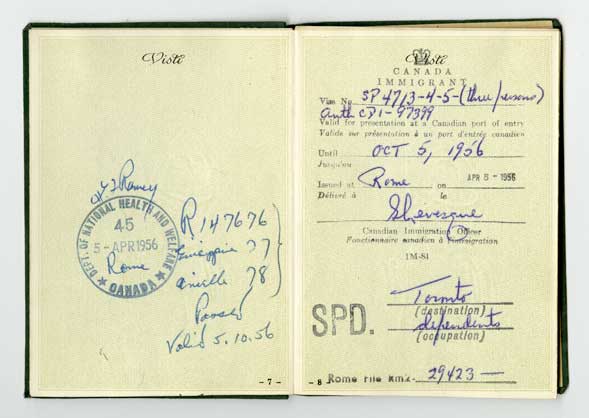 Visti
Ramey
DEPT. OF NATIONAL HEALTH AND WELFARE
45
5-APR 1956
Rome
CANADA
R147676
77
78
Passed
Valid 5.10.56
- 7 -
Visti
CANADA
IMMIGRANT
Visa No. SP 4713-4-5-(three persons)
Auth CPI-97399
Valid for presentation at a Canadian port of entry
Valide sur présentation à un port d'entrée canadien
Until OCT 5, 1956
Jusqu'au
Issued at Rome on APR 5 - 1956
Délivré à le
Canadian Immigration Officer
Fonctionnaire canadien à l'immigration
IM-81
Toronto
(destination)
SPD. dependents
(occupation)
- 8 Rome File RMZ- 29423 —